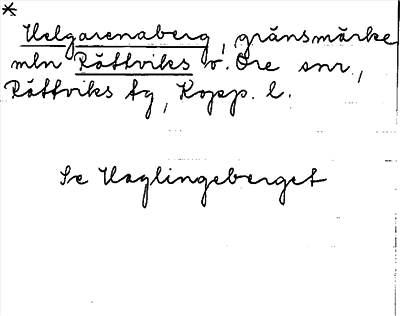 *
Helgarenaberg, gränsmärke
mln Rättviks o. Ore snr,
Rättviks tg, Kopp. l.
Se Haglingeberget